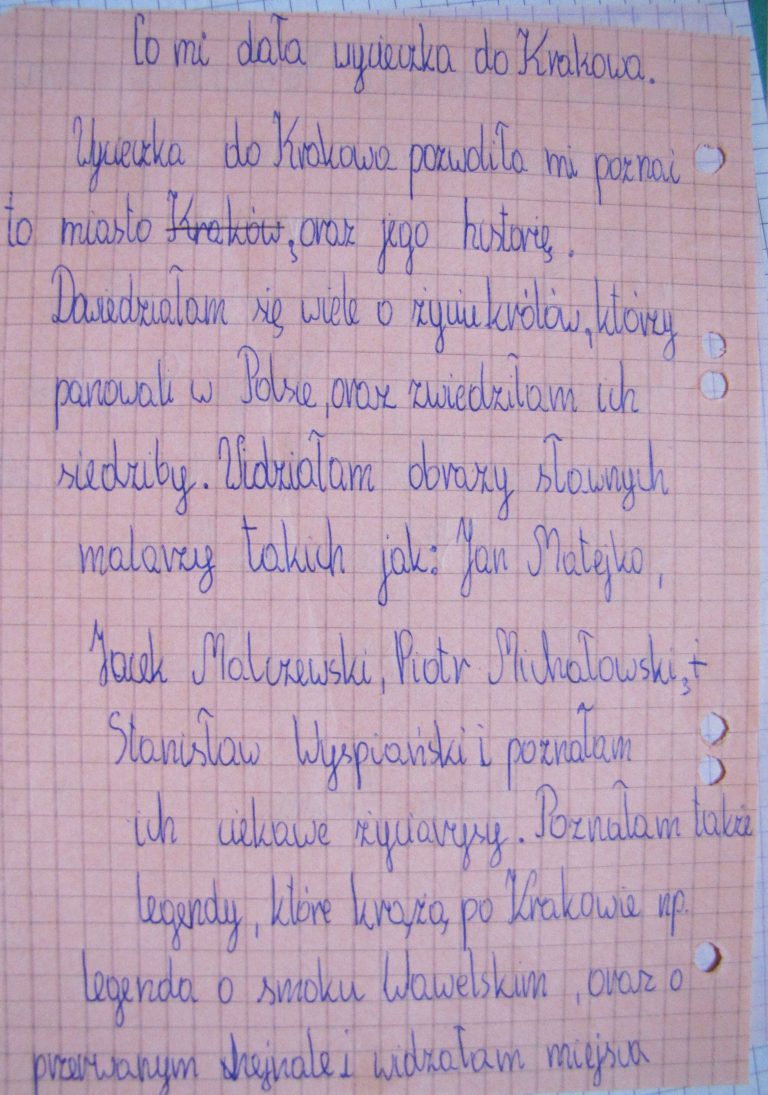 Co mi dała wycieczka do Krakowa.
Wycieczka do Krakowa pozwoliła mi poznać
to miasto Kraków, oraz jego historię.
Dowiedziałam się wiele o życiu królów, którzy
panowali w Polsce, oraz zwiedziłam ich
siedziby. Widziałam obrazy sławnych
malarzy takich jak: Jan Matejko,
Jacek Malczewski, Piotr Michałowski, i
Stanisław Wyspiański i poznałam
ich ciekawe życiorysy. Poznałam także
legendy, które krążą po Krakowie np.
legenda o smoku Wawelskim, oraz o
przerwanym hejnale i widziałam miejsca